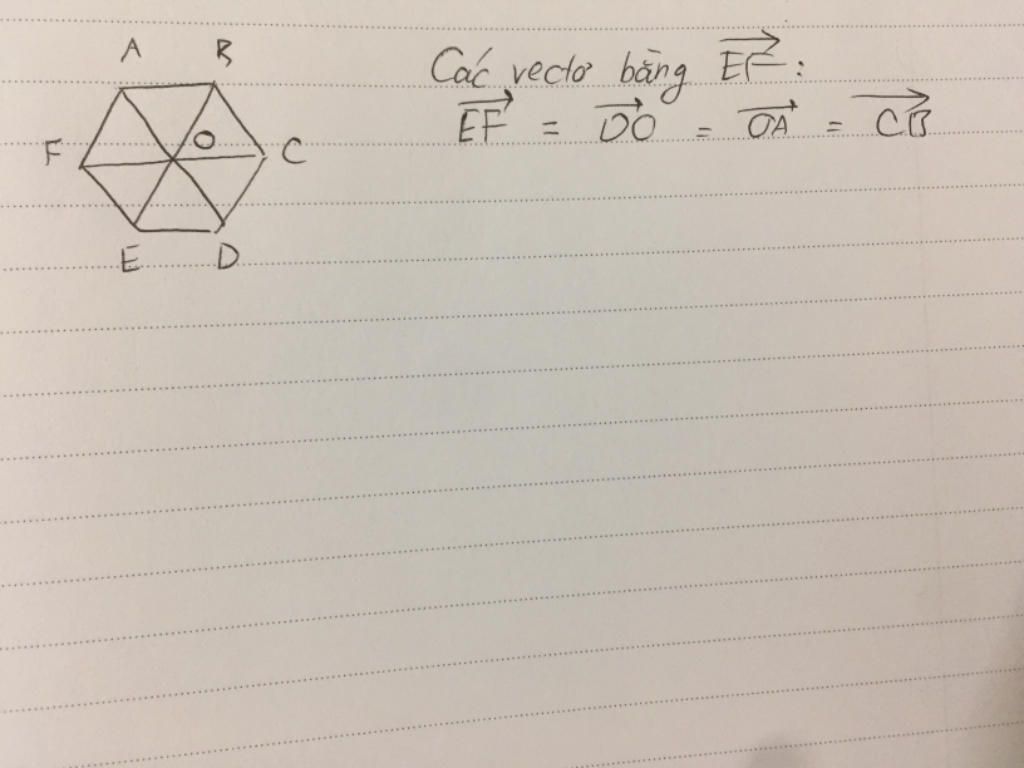 A B
F O C
E D
Các vectơ bằng \overrightarrow{EF} :
\overrightarrow{EF} = \overrightarrow{DO} = \overrightarrow{OA} = \overrightarrow{CB}